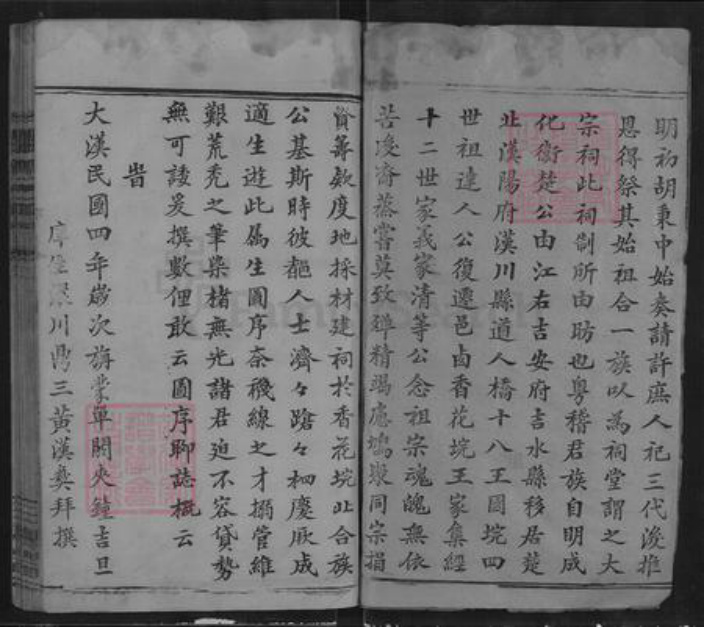 明初胡秉中始奏請許庶人祀三代後推
恩得祭其始祖合一族以為祠堂謂之大
宗祠此祠制所由昉也粵稽君族自明成
化衡楚公由江右吉安府吉水縣移居楚
北漢陽府漢川縣道人橋十八王圖垸四
世祖達人公復遷邑卤香花垸王家集經
十二世家義家清等公念祖宗魂魄無依
苦凌齋蒸嘗莫致殫精竭慮鳩聚同宗捐
資籌欵度地採材建祠於香花垸北合族
公基斯時彼都人士濟々蹌々相慶厥成
適生遊此屬生圖序奈襪線之才搦管維
艱荒禿之筆染楮無光諸君迫不容貸勢
無可諉爰撰數俚敢云圖序聊誌概云
旹
大漢民國四年歲次旃蒙單閼夾鐘吉旦
庠生 川鼎三黃漢彝拜撰